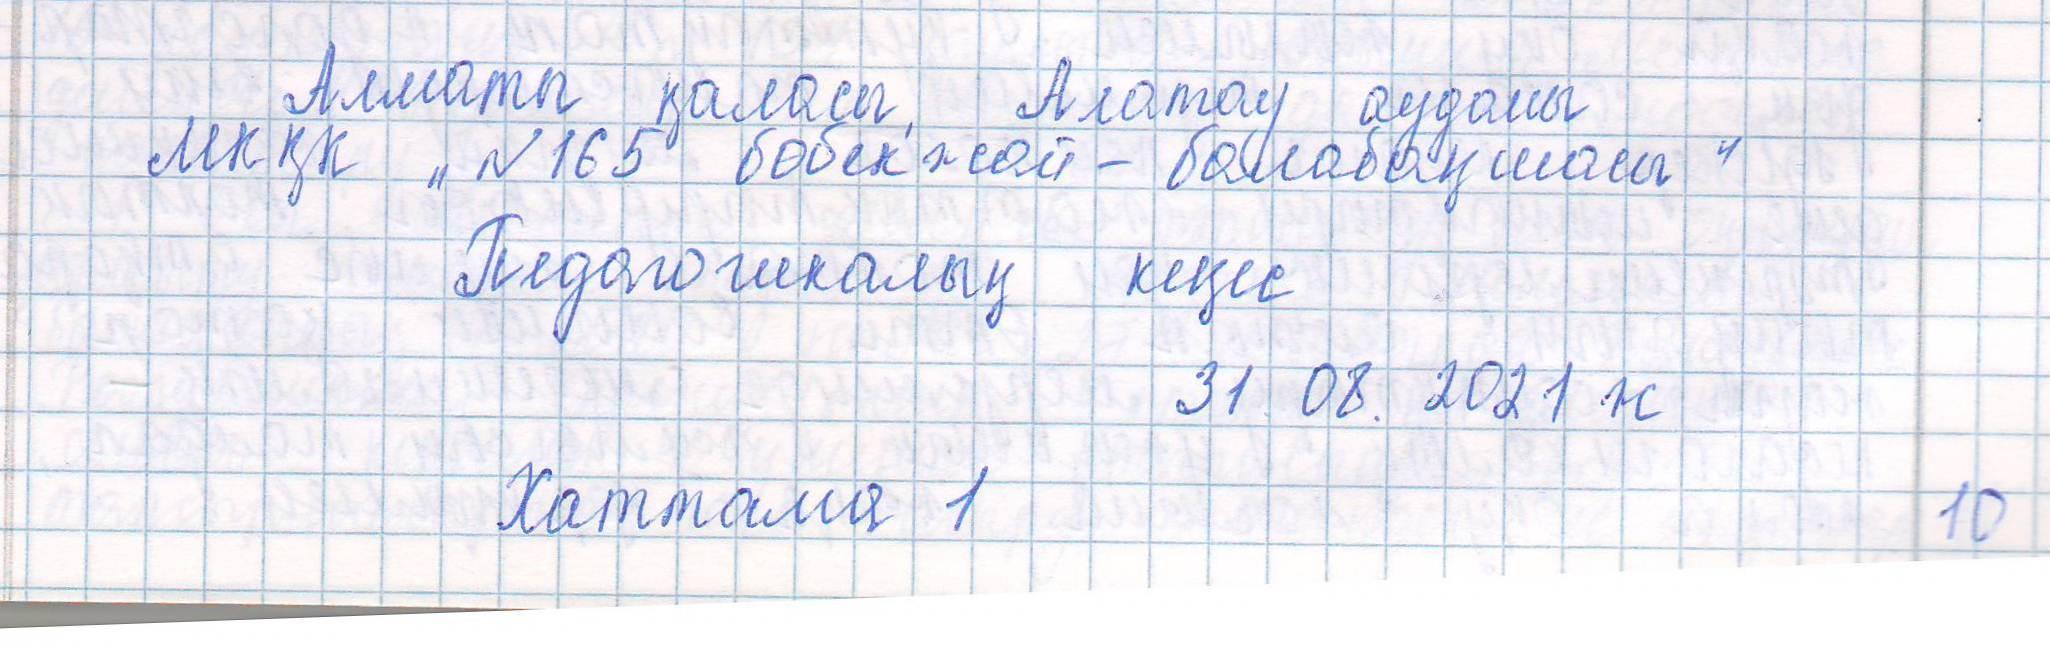 Алматы қаласы, Алатау ауданы
МКҚК „№165 бөбекжай - балабақшасы"
Педагогикалық кеңес
31. 08. 2021 ж
Хаттама 1
10